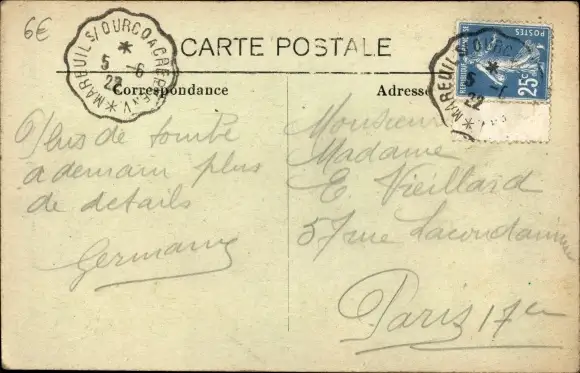 6€
CARTE POSTALE
Correspondance
Adresse
MAREUIL S/OURCQ A CREPY EN V
5 -6
22
REPUBLIQUE FRANÇAISE
POSTES
25c
MAREUIL S/OURC
5 -1
22
Plus de tombé
a demain plus
de details
Germany
Monsieur
Madame
E Vieillard
57 rue Lacondamine
Paris 17em